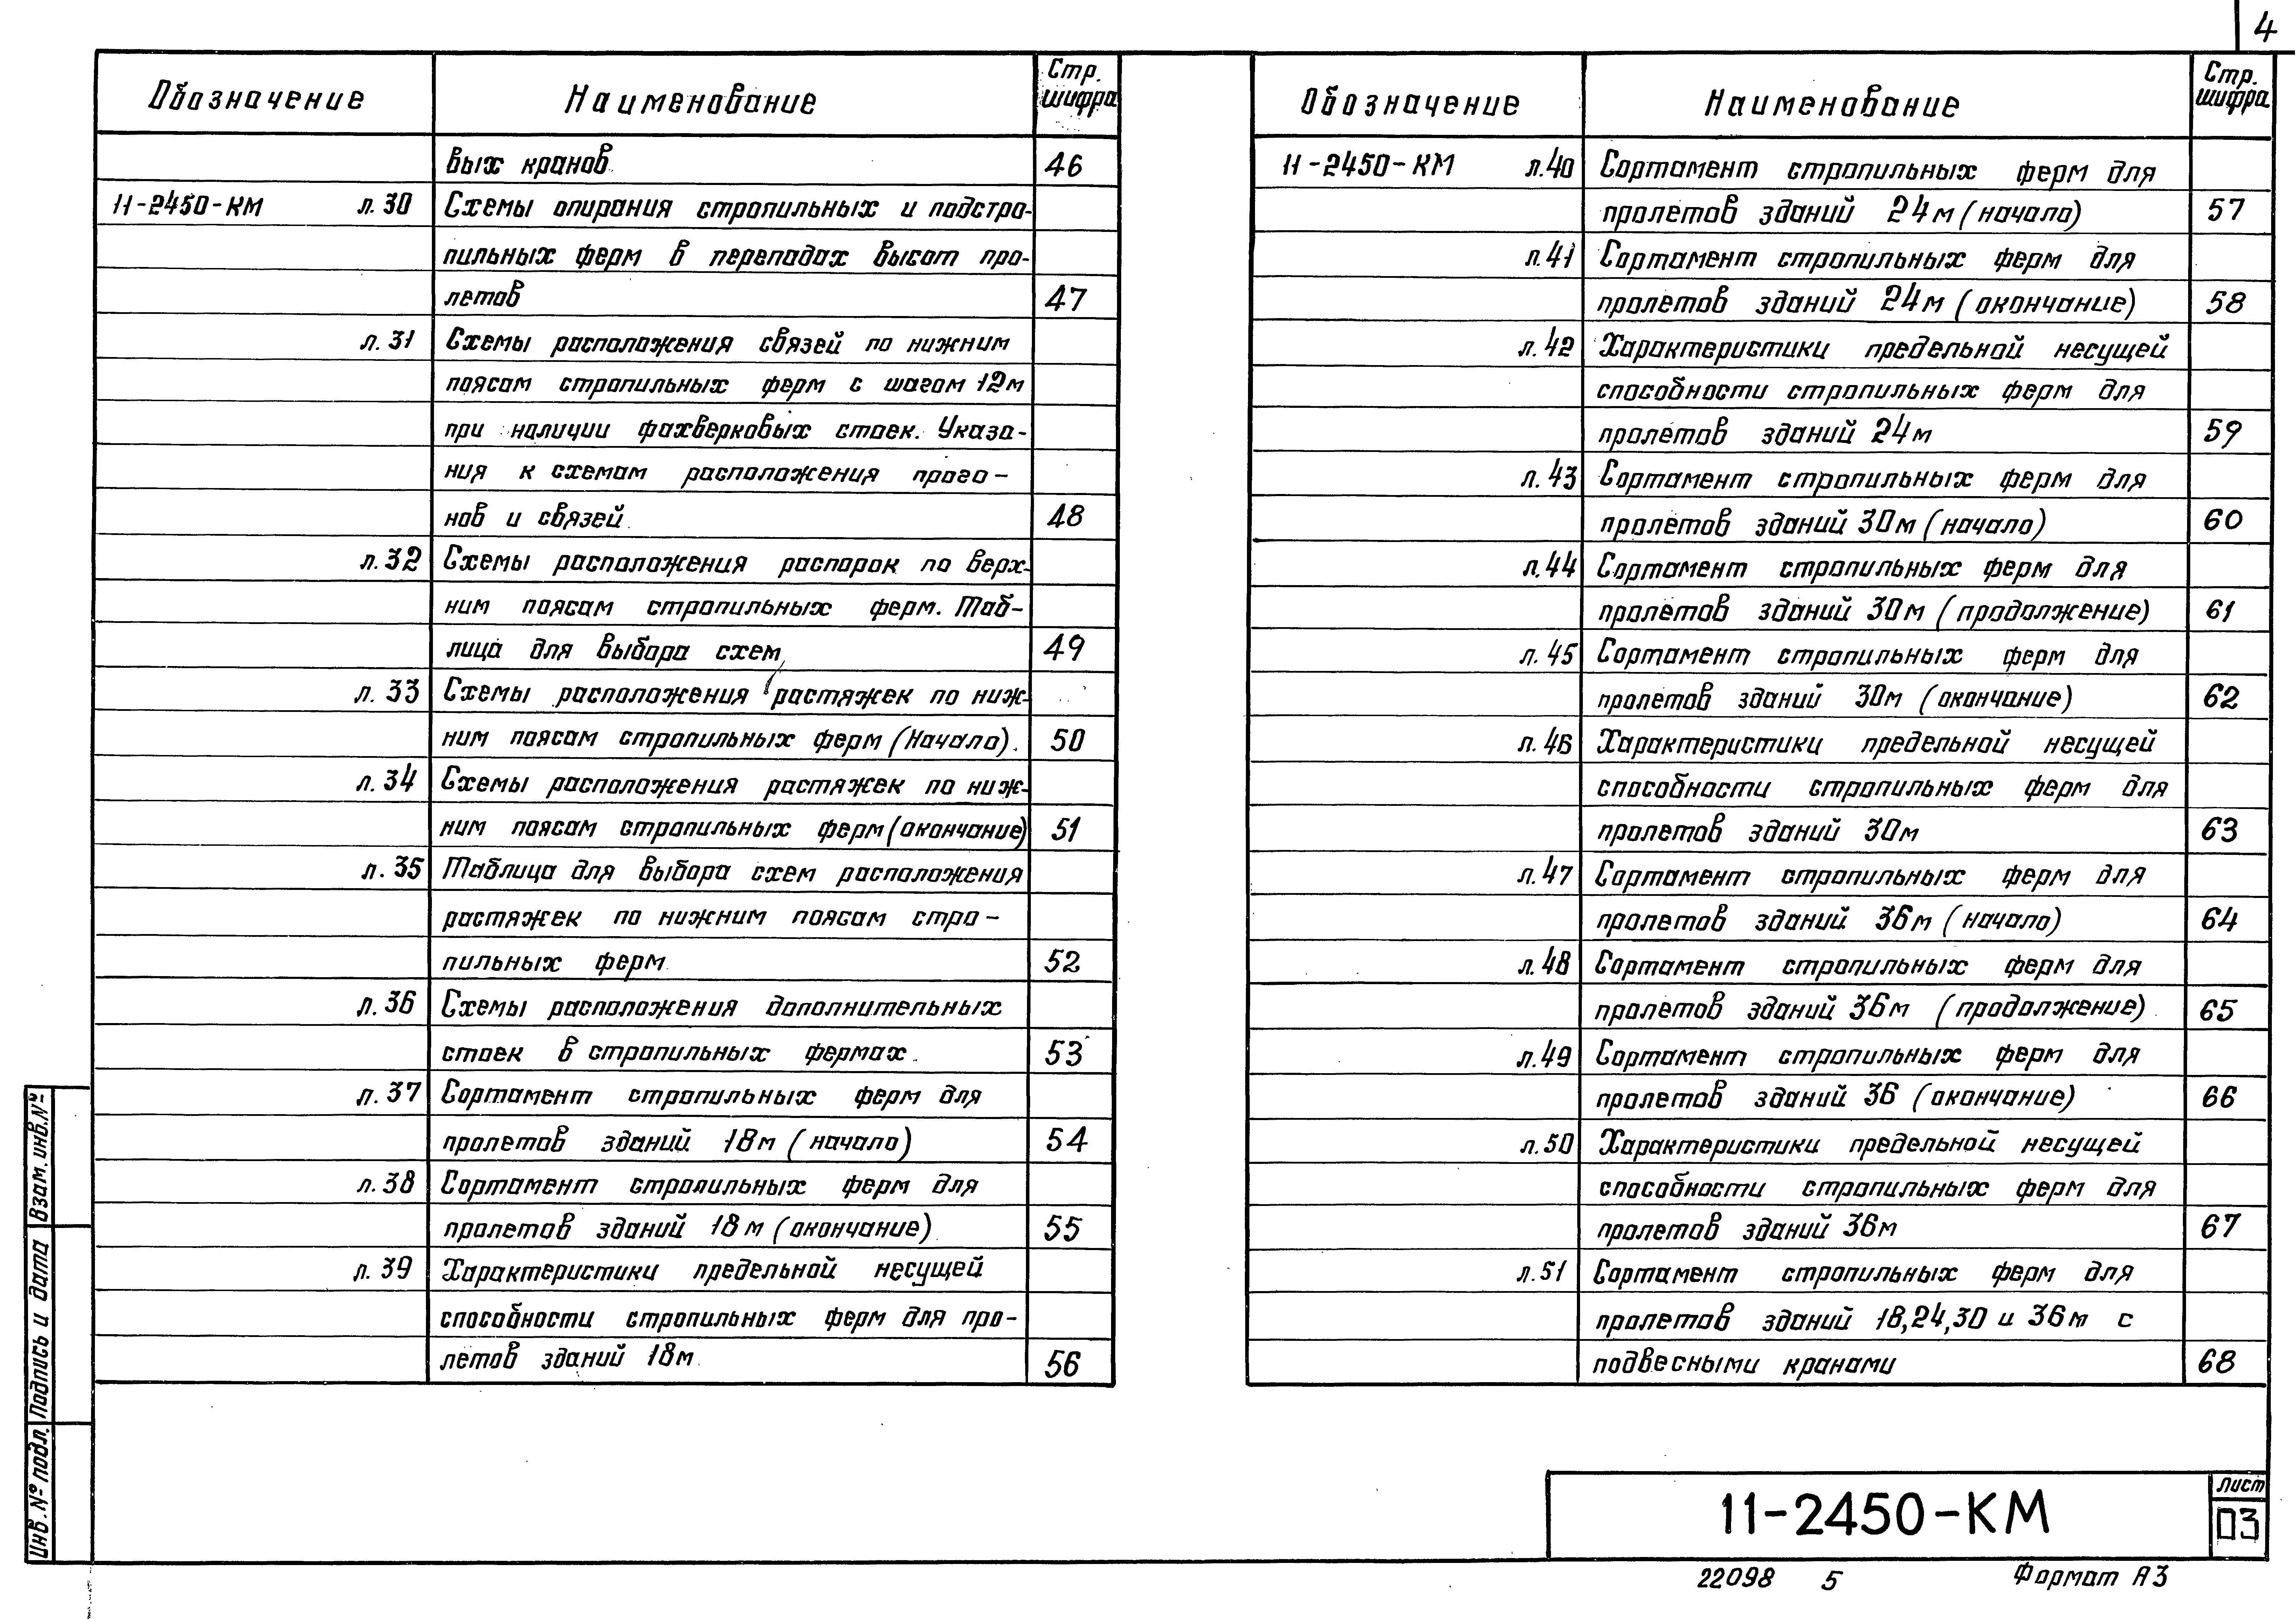 4
Обозначение Наименование Стр. шифра
вых кранов 46
11-2450-КМ л.30 Схемы опирания стропильных и подстро-
пильных ферм в перепадах высот про-
летов 47
л.31 Схемы расположения связей по нижним
поясам стропильных ферм с шагом 12м
при наличии фахверковых стоек. Указа-
ния к схемам расположения прого-
нов и связей 48
л.32 Схемы расположения распорок по верх-
ним поясам стропильных ферм. Таб-
лица для выбора схем 49
л.33 Схемы расположения растяжек по ниж-
ним поясам стропильных ферм (Начало). 50
л.34 Схемы расположения растяжек по ниж-
ним поясам стропильных ферм (окончание) 51
л.35 Таблица для выбора схем расположения
растяжек по нижним поясам стро-
пильных ферм 52
л.36 Схемы расположения дополнительных
стоек в стропильных фермах. 53
л.37 Сортамент стропильных ферм для
пролетов зданий 18м (начало) 54
л.38 Сортамент стропильных ферм для
пролетов зданий 18м (окончание) 55
л.39 Характеристики предельной несущей
способности стропильных ферм для про-
летов зданий 18м 56
Обозначение Наименование Стр. шифра
11-2450-КМ л.40 Сортамент стропильных ферм для
пролетов зданий 24м (начало) 57
л.41 Сортамент стропильных ферм для
пролетов зданий 24м (окончание) 58
л.42 Характеристики предельной несущей
способности стропильных ферм для
пролетов зданий 24м 59
л.43 Сортамент стропильных ферм для
пролетов зданий 30м (начало) 60
л.44 Сортамент стропильных ферм для
пролетов зданий 30м (продолжение) 61
л.45 Сортамент стропильных ферм для
пролетов зданий 30м (окончание) 62
л.46 Характеристики предельной несущей
способности стропильных ферм для
пролетов зданий 30м 63
л.47 Сортамент стропильных ферм для
пролетов зданий 36м (начало) 64
л.48 Сортамент стропильных ферм для
пролетов зданий 36м (продолжение) 65
л.49 Сортамент стропильных ферм для
пролетов зданий 36 (окончание) 66
л.50 Характеристики предельной несущей
способности стропильных ферм для
пролетов зданий 36м 67
л.51 Сортамент стропильных ферм для
пролетов зданий 18,24,30 и 36м с
подвесными кранами 68
Взам. инв.№
Подпись и дата
Инв.№ подл.
11-2450-КМ
Лист
03
22098 5 Формат А3